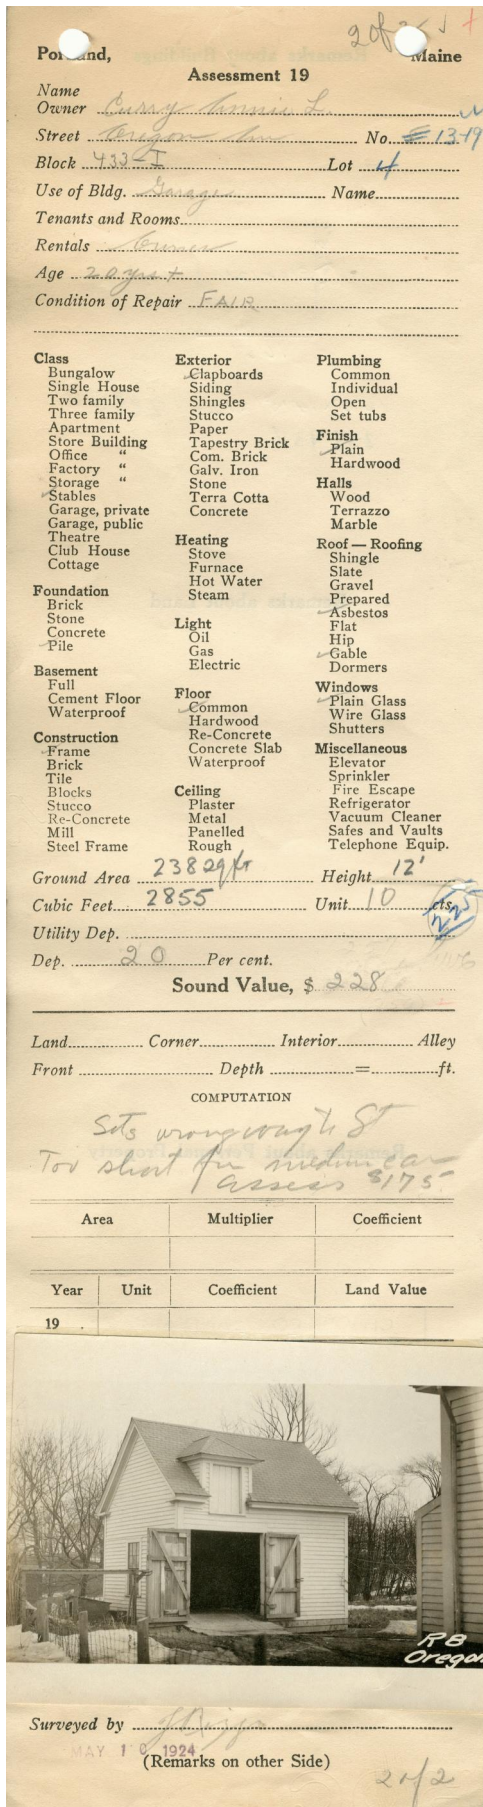 2 of 2
Portland, Maine
Assessment 19
Name
Owner Curry Annie L.
Street Oregon Ave No. 13-19
Block 433-I Lot 4
Use of Bldg. Garage Name
Tenants and Rooms
Rentals Owner
Age 20 yrs +
Condition of Repair FAIR
Class
Bungalow
Single House
Two family
Three family
Apartment
Store Building
Office "
Factory "
Storage "
Stables
Garage, private
Garage, public
Theatre
Club House
Cottage
Foundation
Brick
Stone
Concrete
Pile
Basement
Full
Cement Floor
Waterproof
Construction
Frame
Brick
Tile
Blocks
Stucco
Re-Concrete
Mill
Steel Frame
Exterior
Clapboards
Siding
Shingles
Stucco
Paper
Tapestry Brick
Com. Brick
Galv. Iron
Stone
Terra Cotta
Concrete
Heating
Stove
Furnace
Hot Water
Steam
Light
Oil
Gas
Electric
Floor
Common
Hardwood
Re-Concrete
Concrete Slab
Waterproof
Ceiling
Plaster
Metal
Panelled
Rough
Plumbing
Common
Individual
Open
Set tubs
Finish
Plain
Hardwood
Halls
Wood
Terrazzo
Marble
Roof — Roofing
Shingle
Slate
Gravel
Prepared
Asbestos
Flat
Hip
Gable
Dormers
Windows
Plain Glass
Wire Glass
Shutters
Miscellaneous
Elevator
Sprinkler
Fire Escape
Refrigerator
Vacuum Cleaner
Safes and Vaults
Telephone Equip.
Ground Area 238 sq ft Height 12'
Cubic Feet 2855 Unit 10 cts.
225
Utility Dep.
Dep. 20 Per cent.
Sound Value, $ 228
Land Corner Interior Alley
Front Depth = ft.
COMPUTATION
Sets wrong way to St
Too short for medium car
assess $175
Area Multiplier Coefficient
Year Unit Coefficient Land Value
19
R8
Oregon
Surveyed by
MAY 10 1924
(Remarks on other Side)
2 of 2